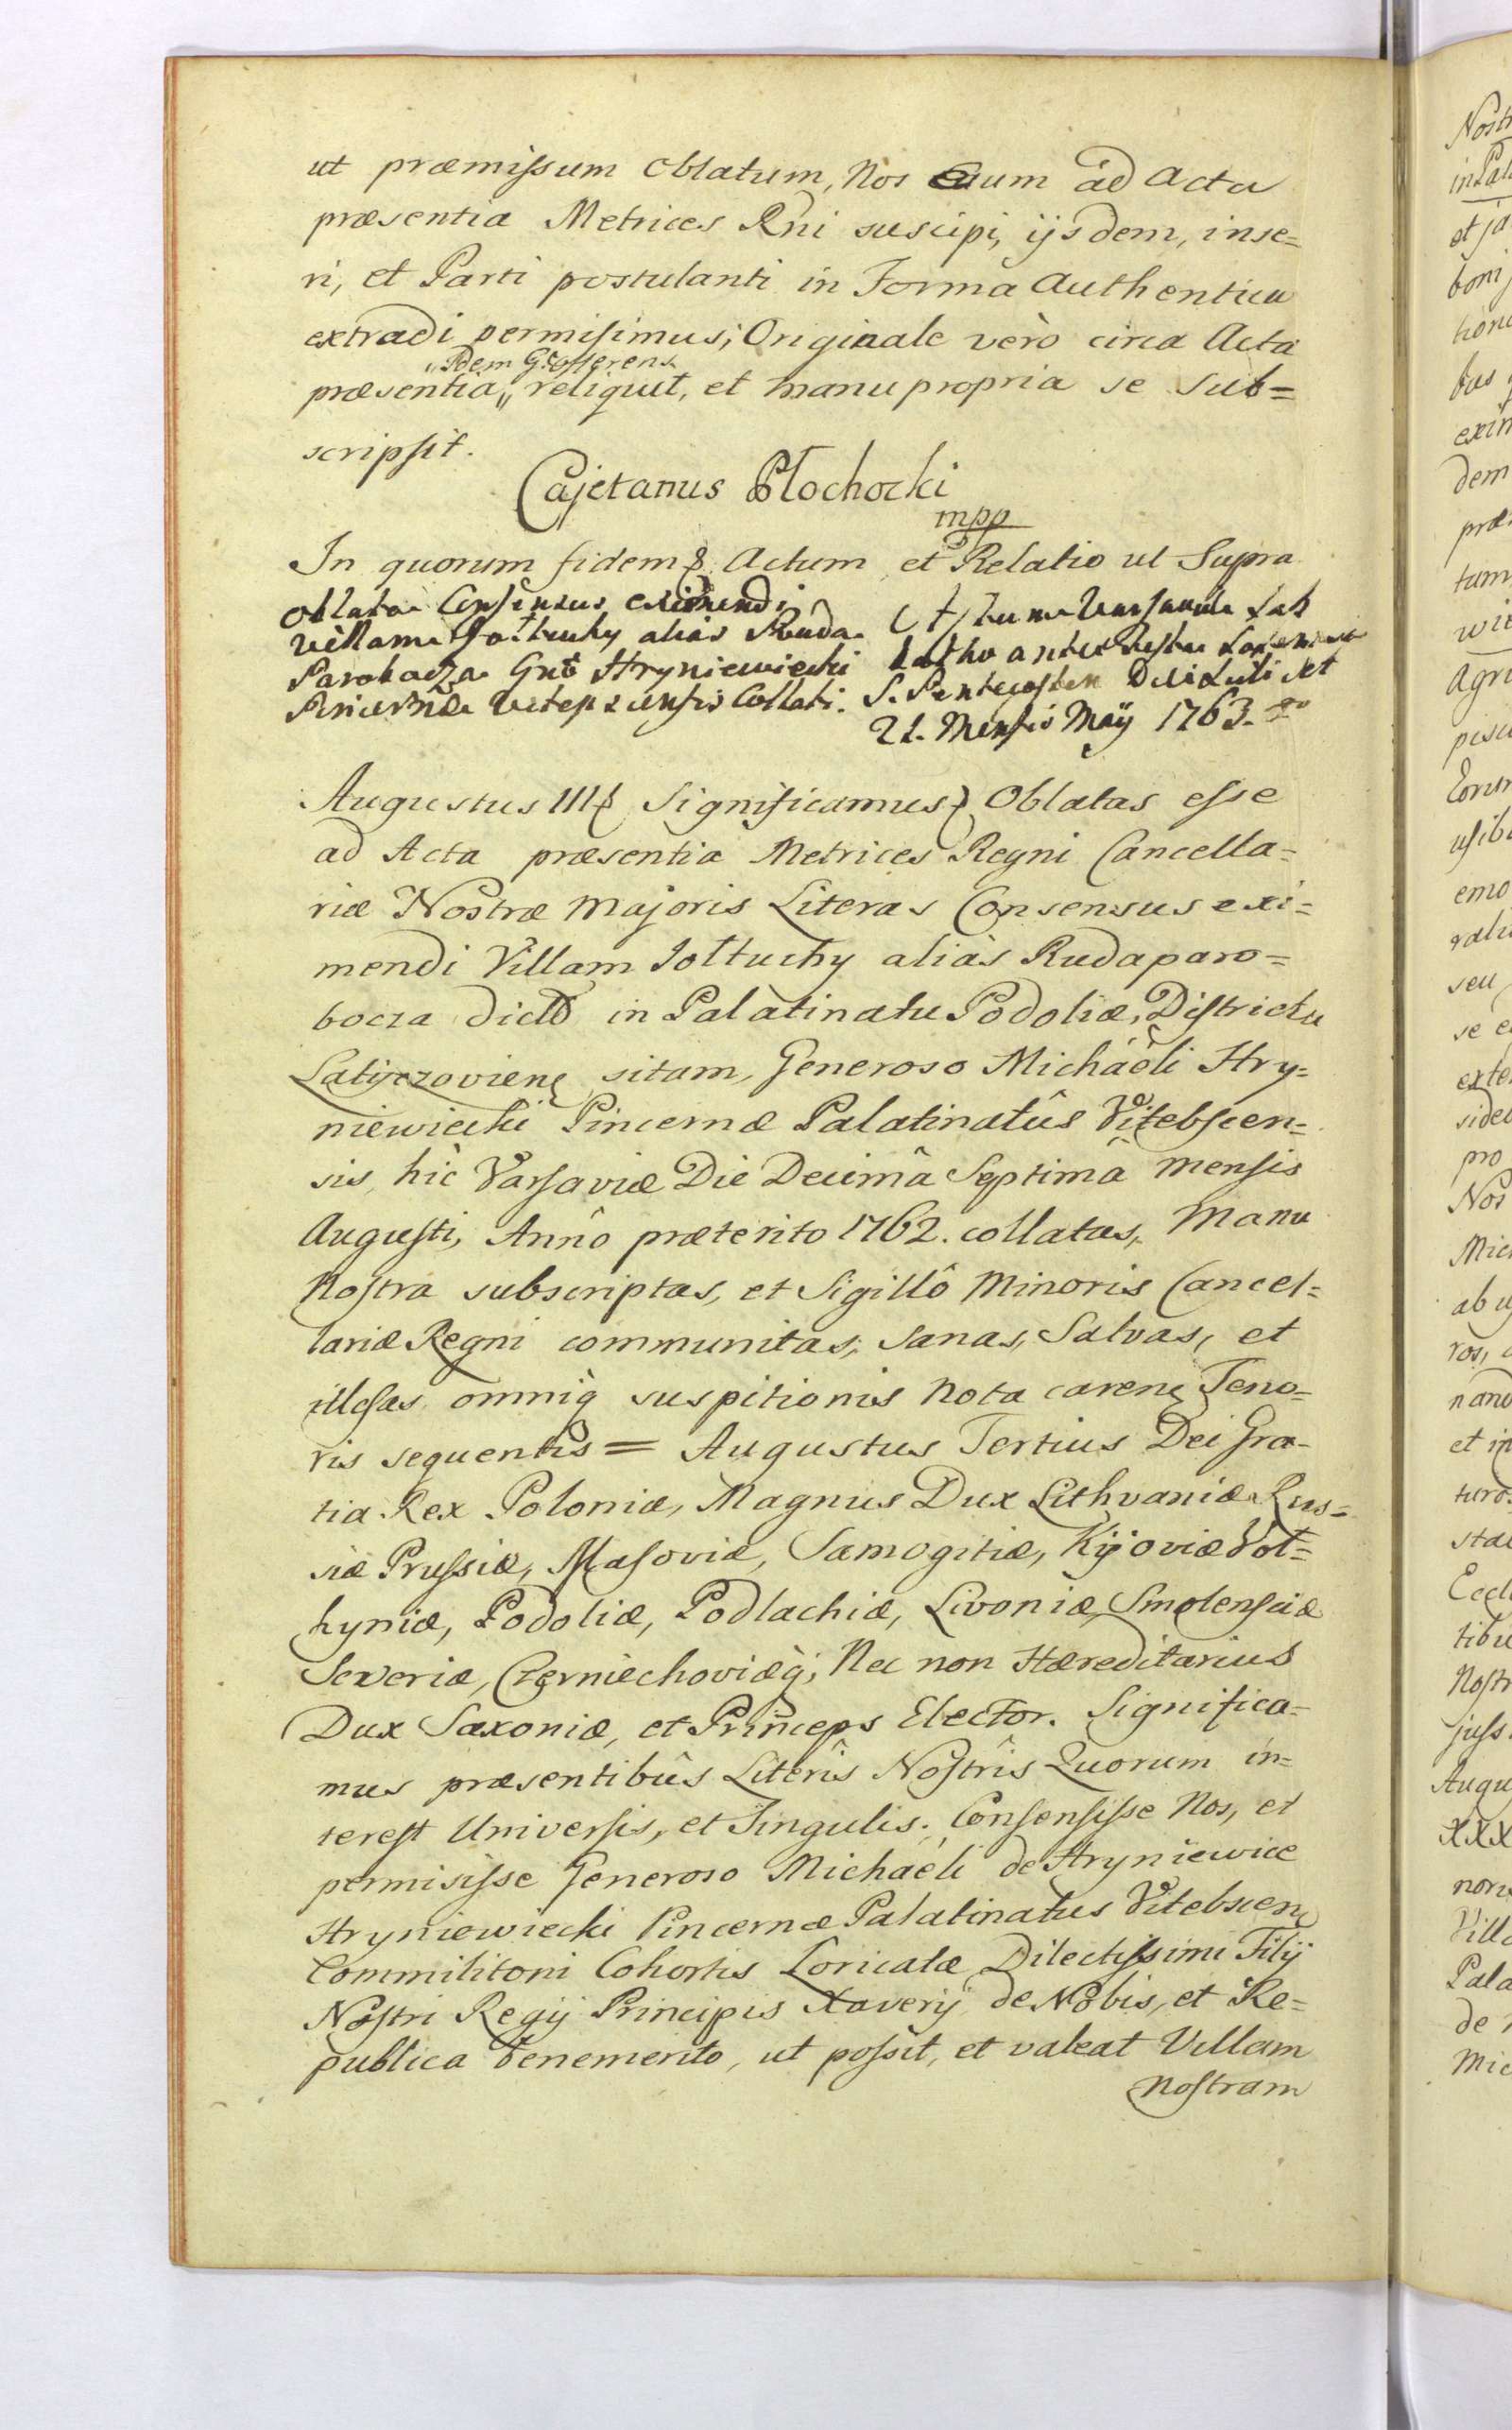 ut præmissum Oblatum, Nos Eum ad Acta
præsentia Metrices Rni suscipi, ijsdem, inse=
ri, et Parti postulanti in Forma Authentica
extradi permisimus; Originale verò circa Acta
"Idem Gs offerens
præsentia,, reliquit, et manu propria se Sub=
scripsit.
Cajetanus Płochocki
mpp
In quorum fidem Actum et Relatio ut Supra
Oblata Consensus eximendi
Villam Jołtuchy alias Ruda
Parobocza Gnō Hryniewiecki
Pincernæ Vitepscensis Collati.
Actum Varsaviæ Sab
batho ante Festum
S. Pentecosten Die
21. Mensis Maÿ 1763.
Augustus III Significamus Oblatas esse
ad Acta præsentia Metrices Regni Cancella=
riæ Nostræ Majoris Literas Consensus exi=
mendi Villam Jołtuchy aliàs Rudaparo=
bocza dict in Palatinatu Podoliæ, Districtu
Latyczovien sitam, Generoso Michaéli Hry=
niewiecki Pincernæ Palatinatûs Vitebscen=
sis, hìc Varsaviæ Die Decimâ Septimâ Mensis
Augusti, Annô præterito 1762. collatas, Manu
Nostra subscriptas, et Sigillô Minoris Cancel=
lariæ Regni communitas; Sanas, Salvas, et
illesas omniq suspitionis nota caren Teno=
ris sequentis = Augustus Tertius Dei Gra=
tia Rex Poloniæ, Magnus Dux Lithvaniæ Rus=
siæ Prussiæ, Masoviæ, Samogitiæ, Kijoviæ Vol=
hyniæ, Podoliæ, Podlachiæ, Livoniæ, Smolensciæ
Severiæ, Czerniechoviæq; Nec non Hæreditarius
Dux Saxoniæ, et Princeps Elector. Significa=
mus præsentibûs Literîs Nostrîs Quorum in=
terest Universis, et Singulis. Consensisse Nos, et
permisisse Generoso Michaéli de Hryniewice
Hryniewiecki Pincernæ Palatinatus Vitebscen
Commilitoni Cohortis Loricatæ Dilectissimi Filij
Nostri Regij Principis Xaverij de Nobis, et Re=
publica benemerito, ut possit, et valeat Villam
Nostram